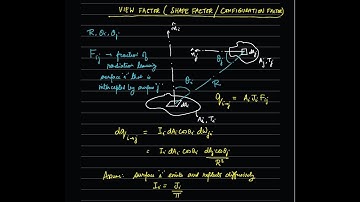 VIEW FACTOR ( SHAPE FACTOR / CONFIGURATION FACTOR)
R, θi, θj
Fij → fraction of radiation leaving surface 'i' that is intercepted by surface 'j'
n̂i
n̂j
dAj
Aj, Tj
θj
θi
R
dAi
Ai, Ti
qi→j = Ai Ji Fij
dqi→j = Ii dAi cosθi dωji
= Ii dAi cosθi dAj cosθj / R²
Assume: surface 'i' emits and reflects diffusively
Ii = Ji / π